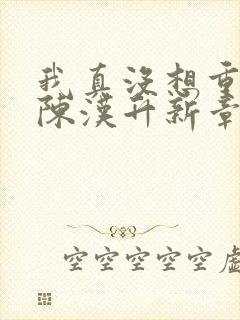 我真没想重
陈漢升新章
空空空空空虚